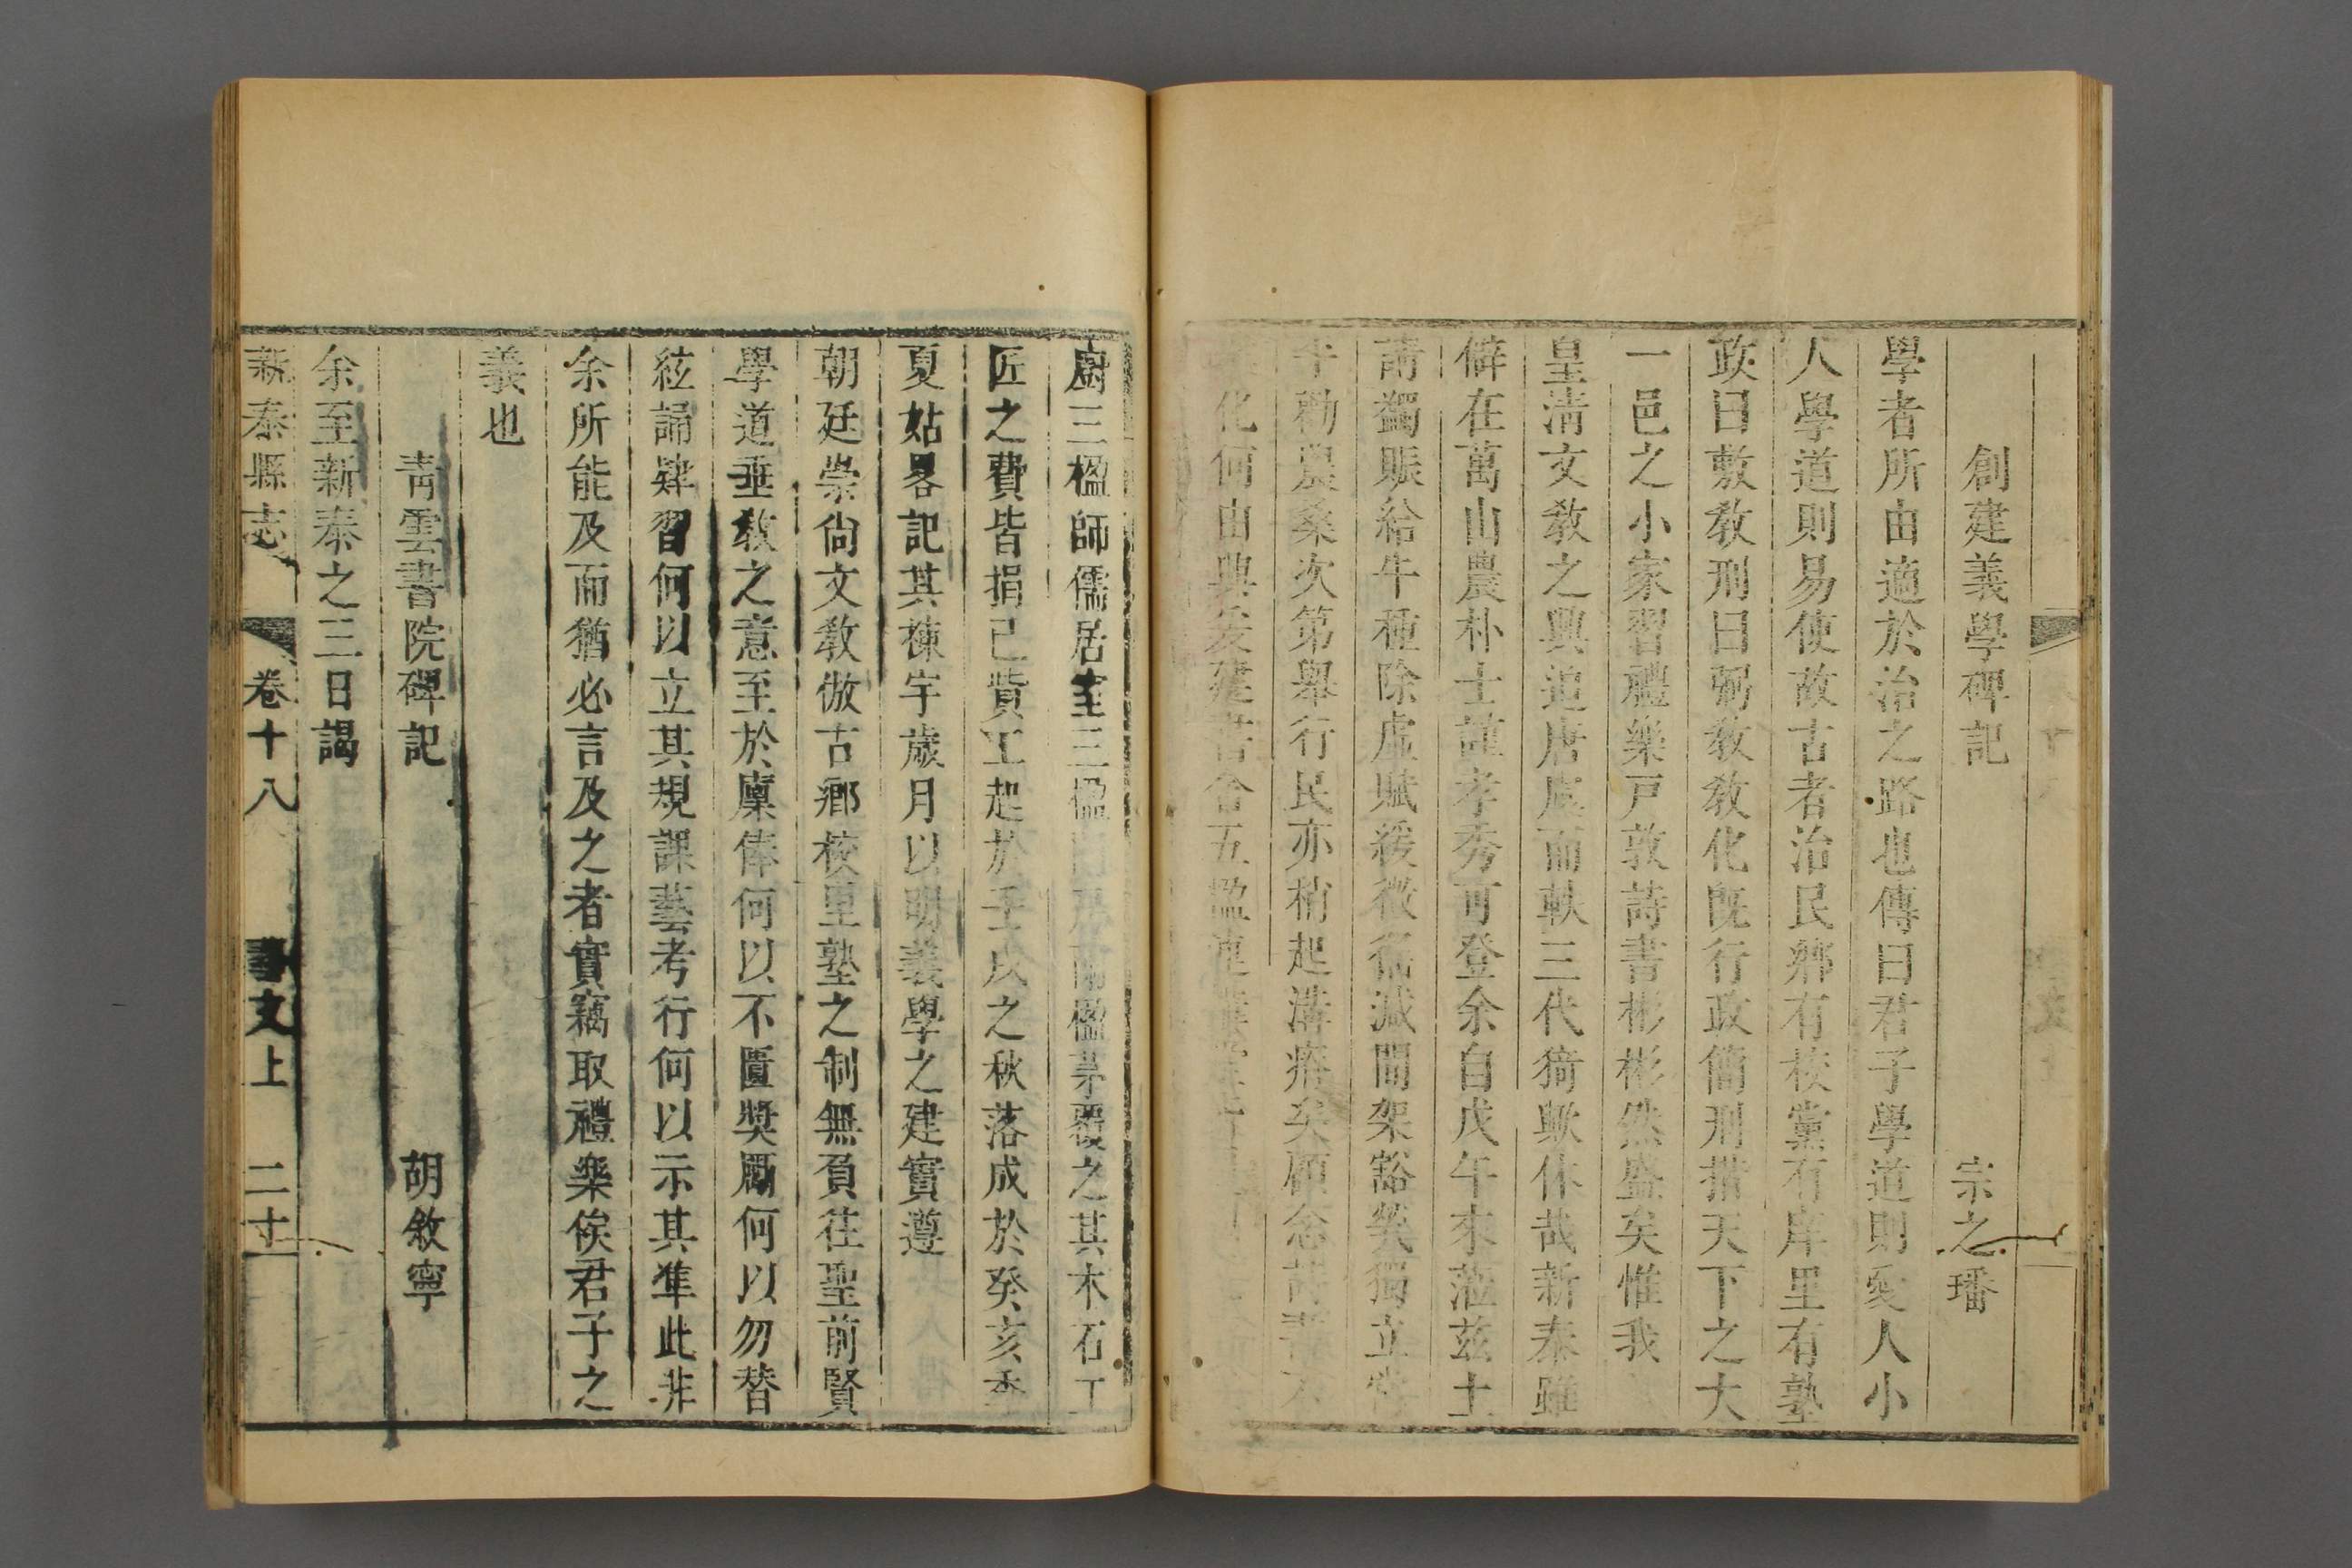 創建義學碑記
宗之璠
學者所由適於治之路也傳曰君子學道則愛人小
人學道則易使故古者治民鄉有校黨有庠里有塾
政曰敷教刑曰弼教教化既行政簡刑措天下之大
一邑之小家習禮樂戸敦詩書彬彬然盛矣惟我
皇清文敎之興追唐虞而軼三代猗歟休哉新泰雖
僻在萬山農朴士謹孝秀可登余自戊午來蒞茲土
請蠲賑給牛種除虛賦緩徵徭減間架豁煢獨立
勸農桑次第舉行民亦稍起溝瘠矣顧念詩書
化何由興爰建書舍五楹
廚三楹師儒居室三楹兩楹茅覆之其木石工
匠之費皆捐己貲工起於壬戌之秋落成於癸亥季
夏姑畧記其棟宇歲月以明義學之建實遵
朝廷崇尙文敎倣古鄉校里塾之制無負往聖前賢
學道垂敎之意至於廩俸何以不匱奬厲何以勿替
絃誦肄習何以立其規課藝考行何以示其準此非
余所能及而猶必言及之者實竊取禮樂俟君子之
義也
靑雲書院碑記
胡敘寧
余至新泰之三日謁
新泰縣志
卷十八
文上
二十